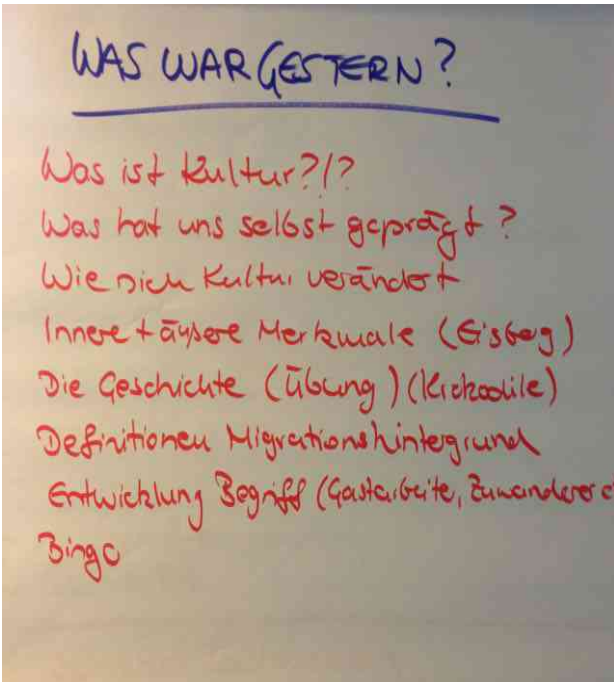 WAS WAR GESTERN?
Was ist Kultur?!?
Was hat uns selbst geprägt?
Wie sich Kultur verändert
Innere + äußere Merkmale (Eisberg)
Die Geschichte (Übung) (Krokodile)
Definitionen Migrationshintergrund
Entwicklung Begriff (Gastarbeite, Zuwanderer
Bingo